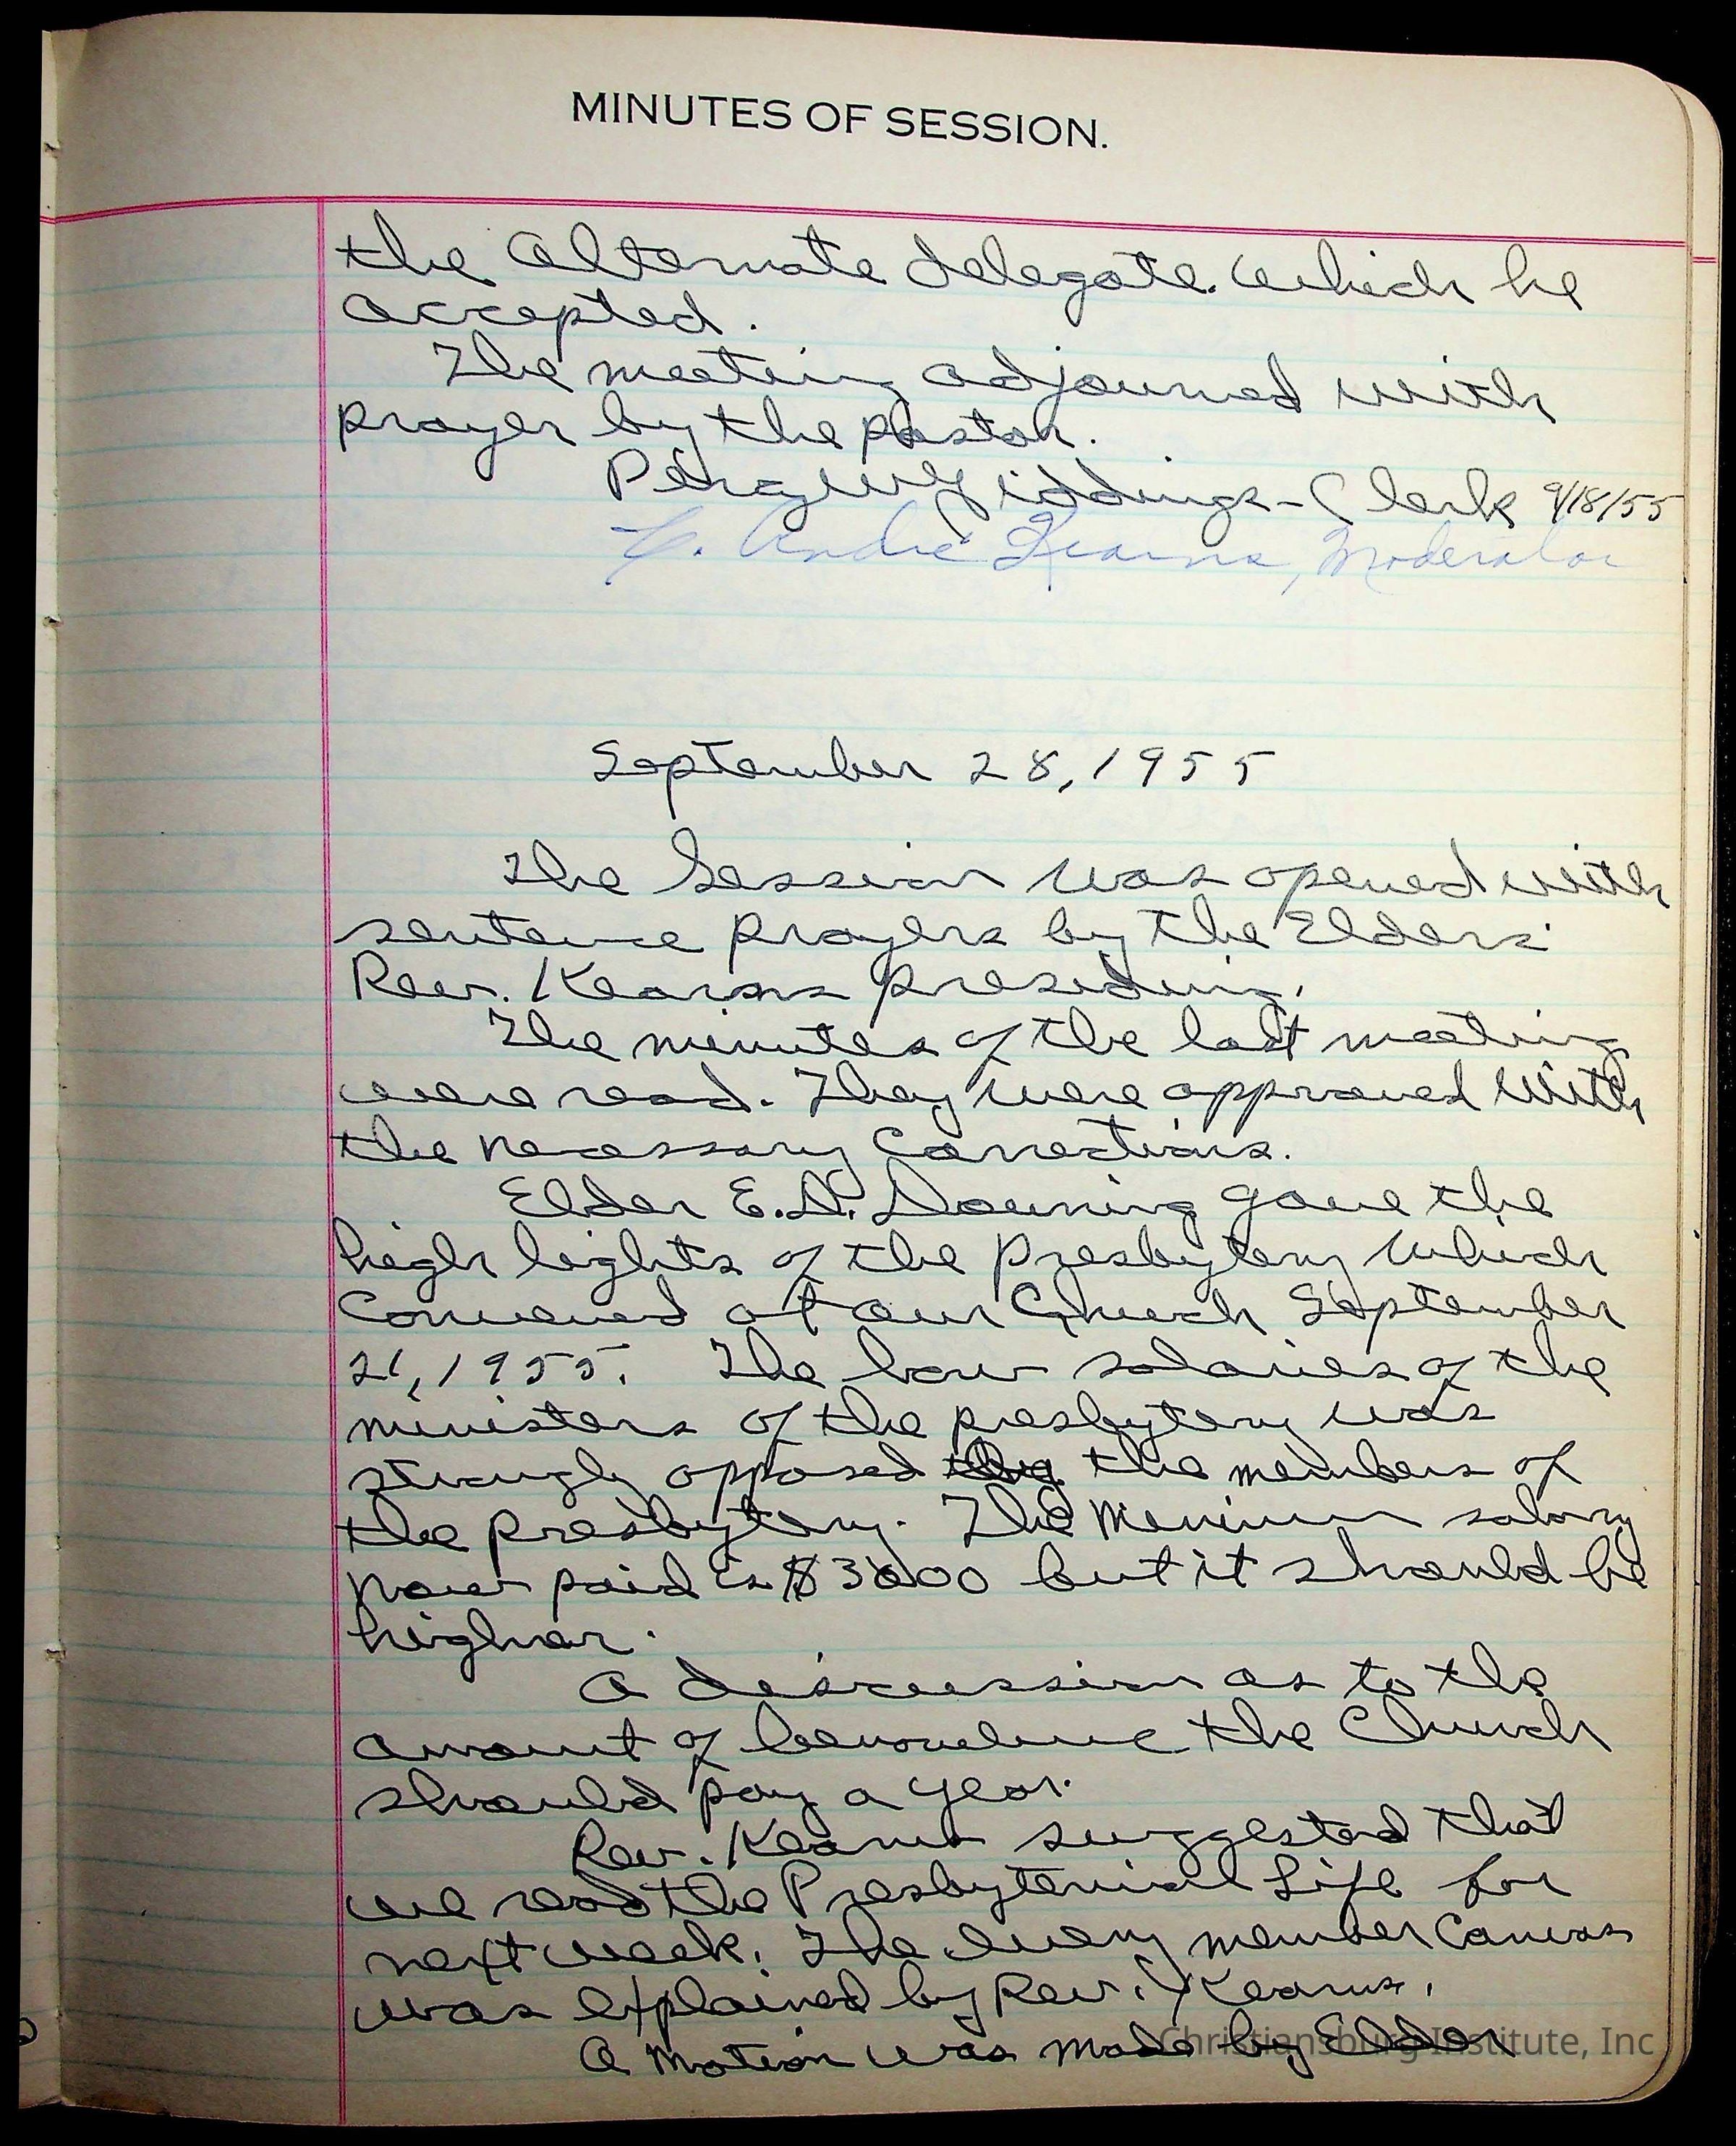 MINUTES OF SESSION.
the Alternate delegate. Which he
accepted.
The meeting adjourned with
prayer by the pastor.
Percy W Giddings - Clerk 9/18/55
C. André Kearns, Moderator
September 28, 1955
The Session was opened with
sentence prayers by the Elders
Rev. Kearns presiding.
The minutes of the last meeting
were read. They were approved with
the necessary Corrections.
Elder E.D. Downing gave the
high lights of the Presbytery which
Convened at our Church September
21, 1955. The low salaries of the
ministers of the presbytery was
strongly opposed the members of
the Presbytery. The Minimum salary
now paid is $3000 but it should be
higher.
A discussion as to the
amount of benovelence the Church
should pay a year.
Rev. Kearns suggested that
we read the Presbyterial Life for
next week. The every member Canvas
was explained by Rev. Kearns.
A motion was made by Elder
Christiansburg Institute, Inc